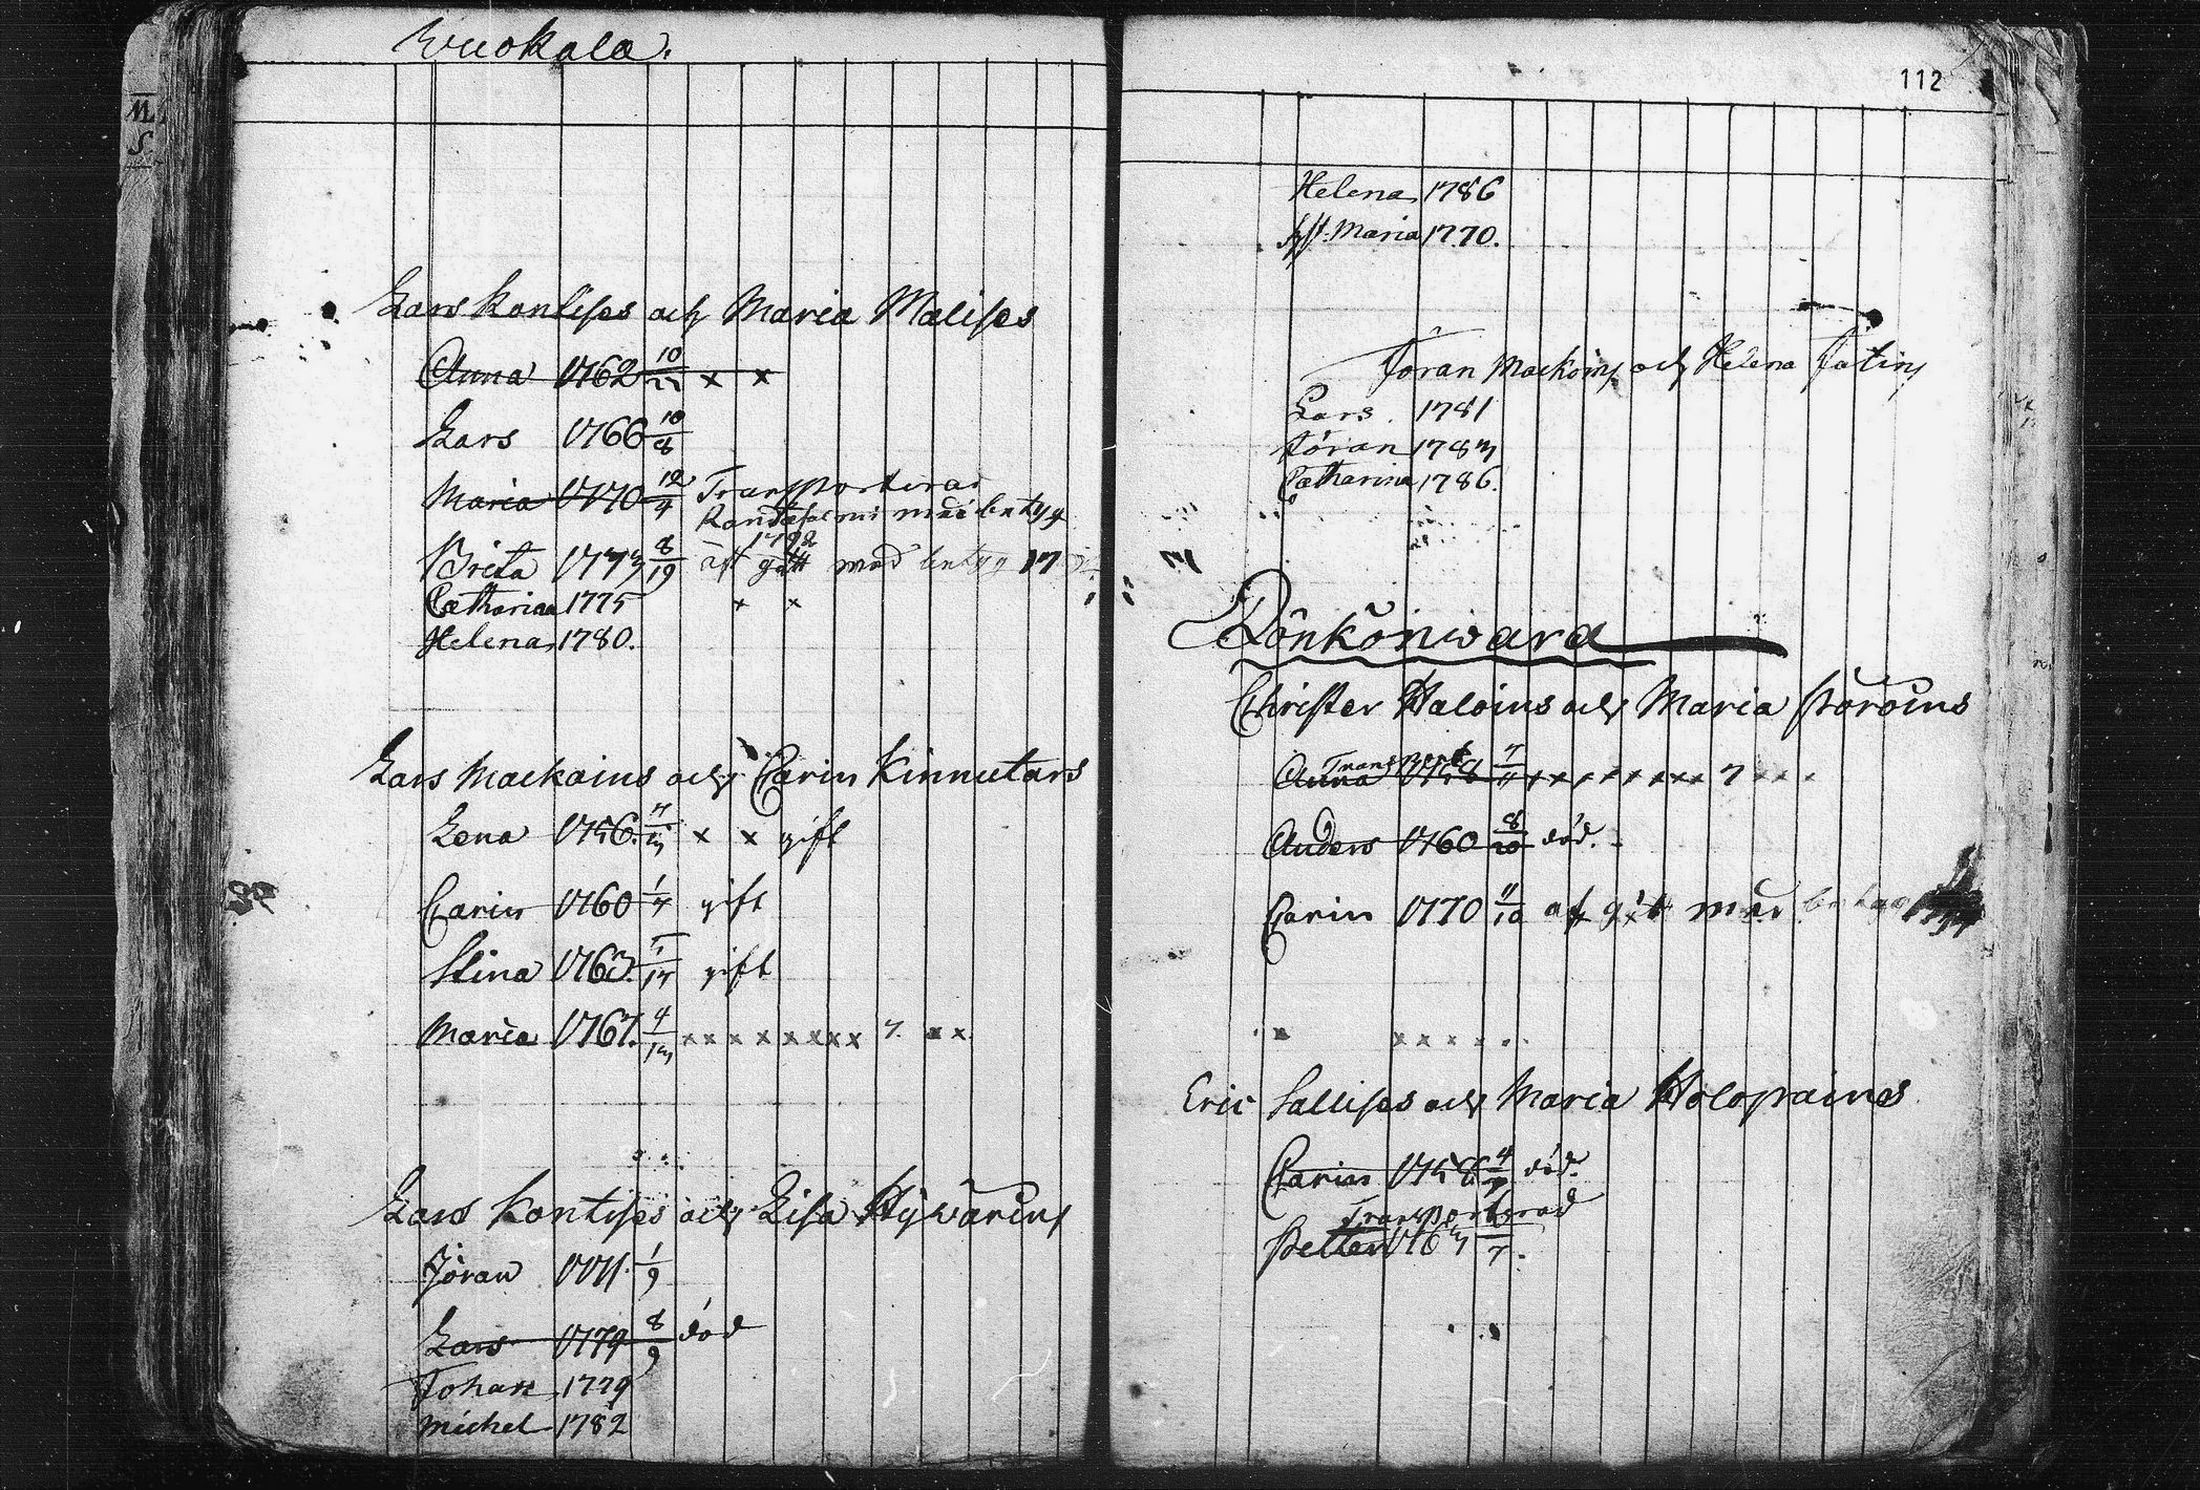 Wuokala.
Lars Kontises och Maria Malises
Anna 1762 10/22 x x
Lars 1766 10/8
Maria 1770 12/4 Transporterad
Randasalmi med betyg
1792
Brita 1773 8/19 afgått med betyg 17
Catharina 1775 x x
Helena 1780.
Lars Mackoins och Carin Kinnutars
Lena 1756. x x gift
Carin 1760 1/7 gift
Stina 1763. gift
Maria 1767. 4/13 x x x x x x x x 7. x x
Lars Kontises och Lisa Hywärins
Jöran 1771. 1/9
Lars 1779 8/9 död
Johan 1779
Michel 1782
112
Helena 1786
Maria 1770.
Jöran Mackoins och Helena
Lars 1781
Jöran 1783
Catharina 1786.
Pönköniwara
Christer Haloins och Maria
Transport
Anna 1758 x x x x x x x x 7 x x x
Anders 1760 8/20 död.
Carin 1770 11/10 afgått med betyg
x x x x
Eric Sallises och Maria Holopaines
Carin 1758 4/7 död.
Transporterad
Petter 1763